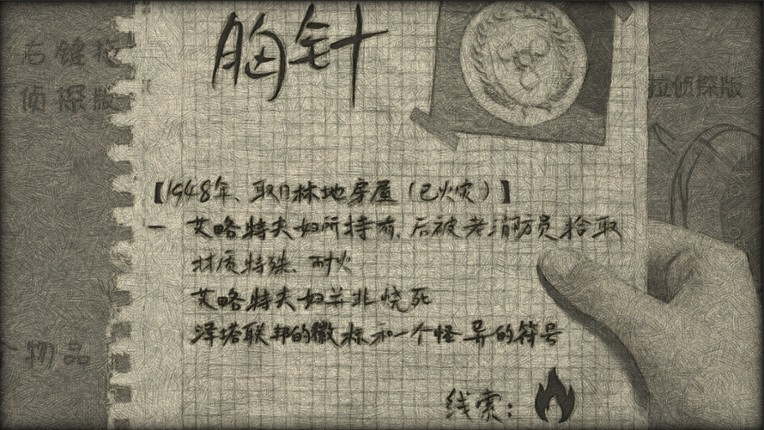 胸针
右键拉
侦探版
拉侦探版
【1948年、取自林地房屋（已火灾）】
一 艾略特夫妇所持有、后被老消防员拾取
材质特殊、耐火
艾略特夫妇并非烧死
泽塔联邦的徽标和一个怪异的符号
物品
线索：